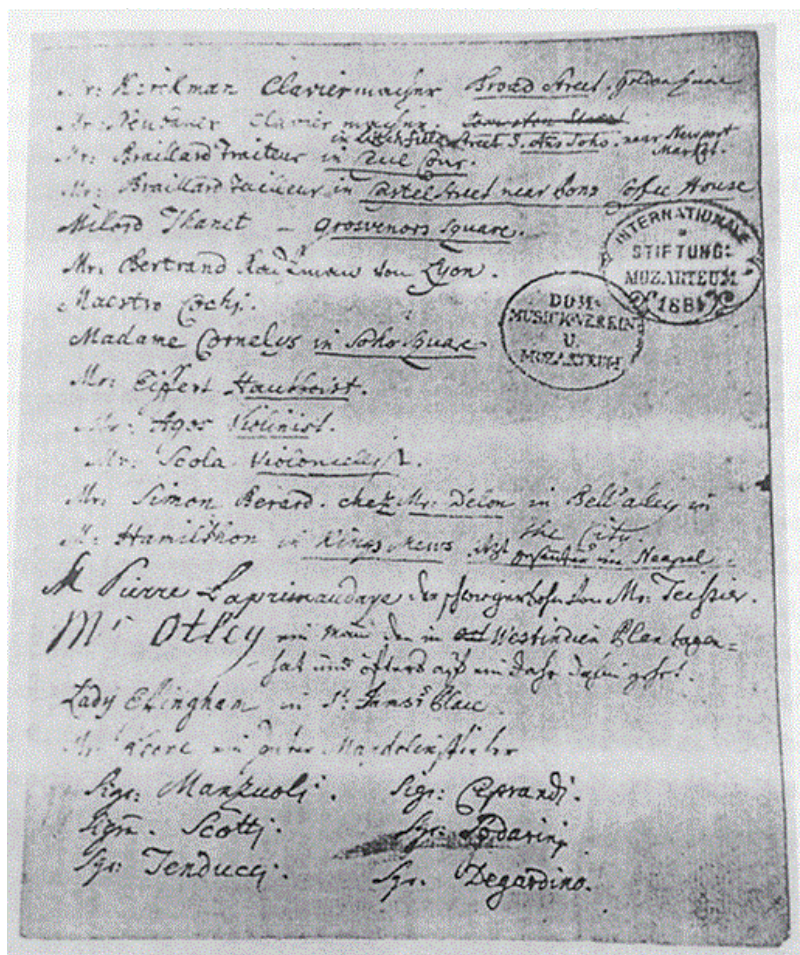 Mr: Kirckman Claviermacher Broad Street, golden
Mr: Neubauer Claviermacher.
in Litchfield Street S. Ans Soho. near Newport Market.
Mr: Braillard Traiteur in
Mr: Braillard in Castel Street near Coffee House
Milord Thanet – Grosvenors Square.
Mr: Bertrand Kaufman von Lyon.
Maestro Cochi.
Madame Cornelys in Soho Square
Mr: Eiffert Hautboist.
Mr: Agos Violinist.
Mr: Scola Violoncellist.
Mr: Simon Berard. chez Mr: Delon in Bell alley in the City.
Mr: Hamilthon in Kings Mews itzt gesandter in Neapel.
Mr Pierre Laprimaudaye der schwigersohn von Mr: Teissier.
Mr Otley ein Mann der in Westindien Plantagen=
hat und öfters auf ein Jahr dahin gehet.
Lady Effinghan in St: Jams's Place
Mr: ein guter Mandolinspieler
Sigr: Manzuoli. Sigr: Ciprandi.
Sigra. Scotti. Sgr:
Sgr: Tenducci. Sgr. Degardino.
INTERNATIONALE
STIFTUNG:
MOZARTEUM
1881
DOM-
MUSICK-VEREIN
U.
MOZARTEUM